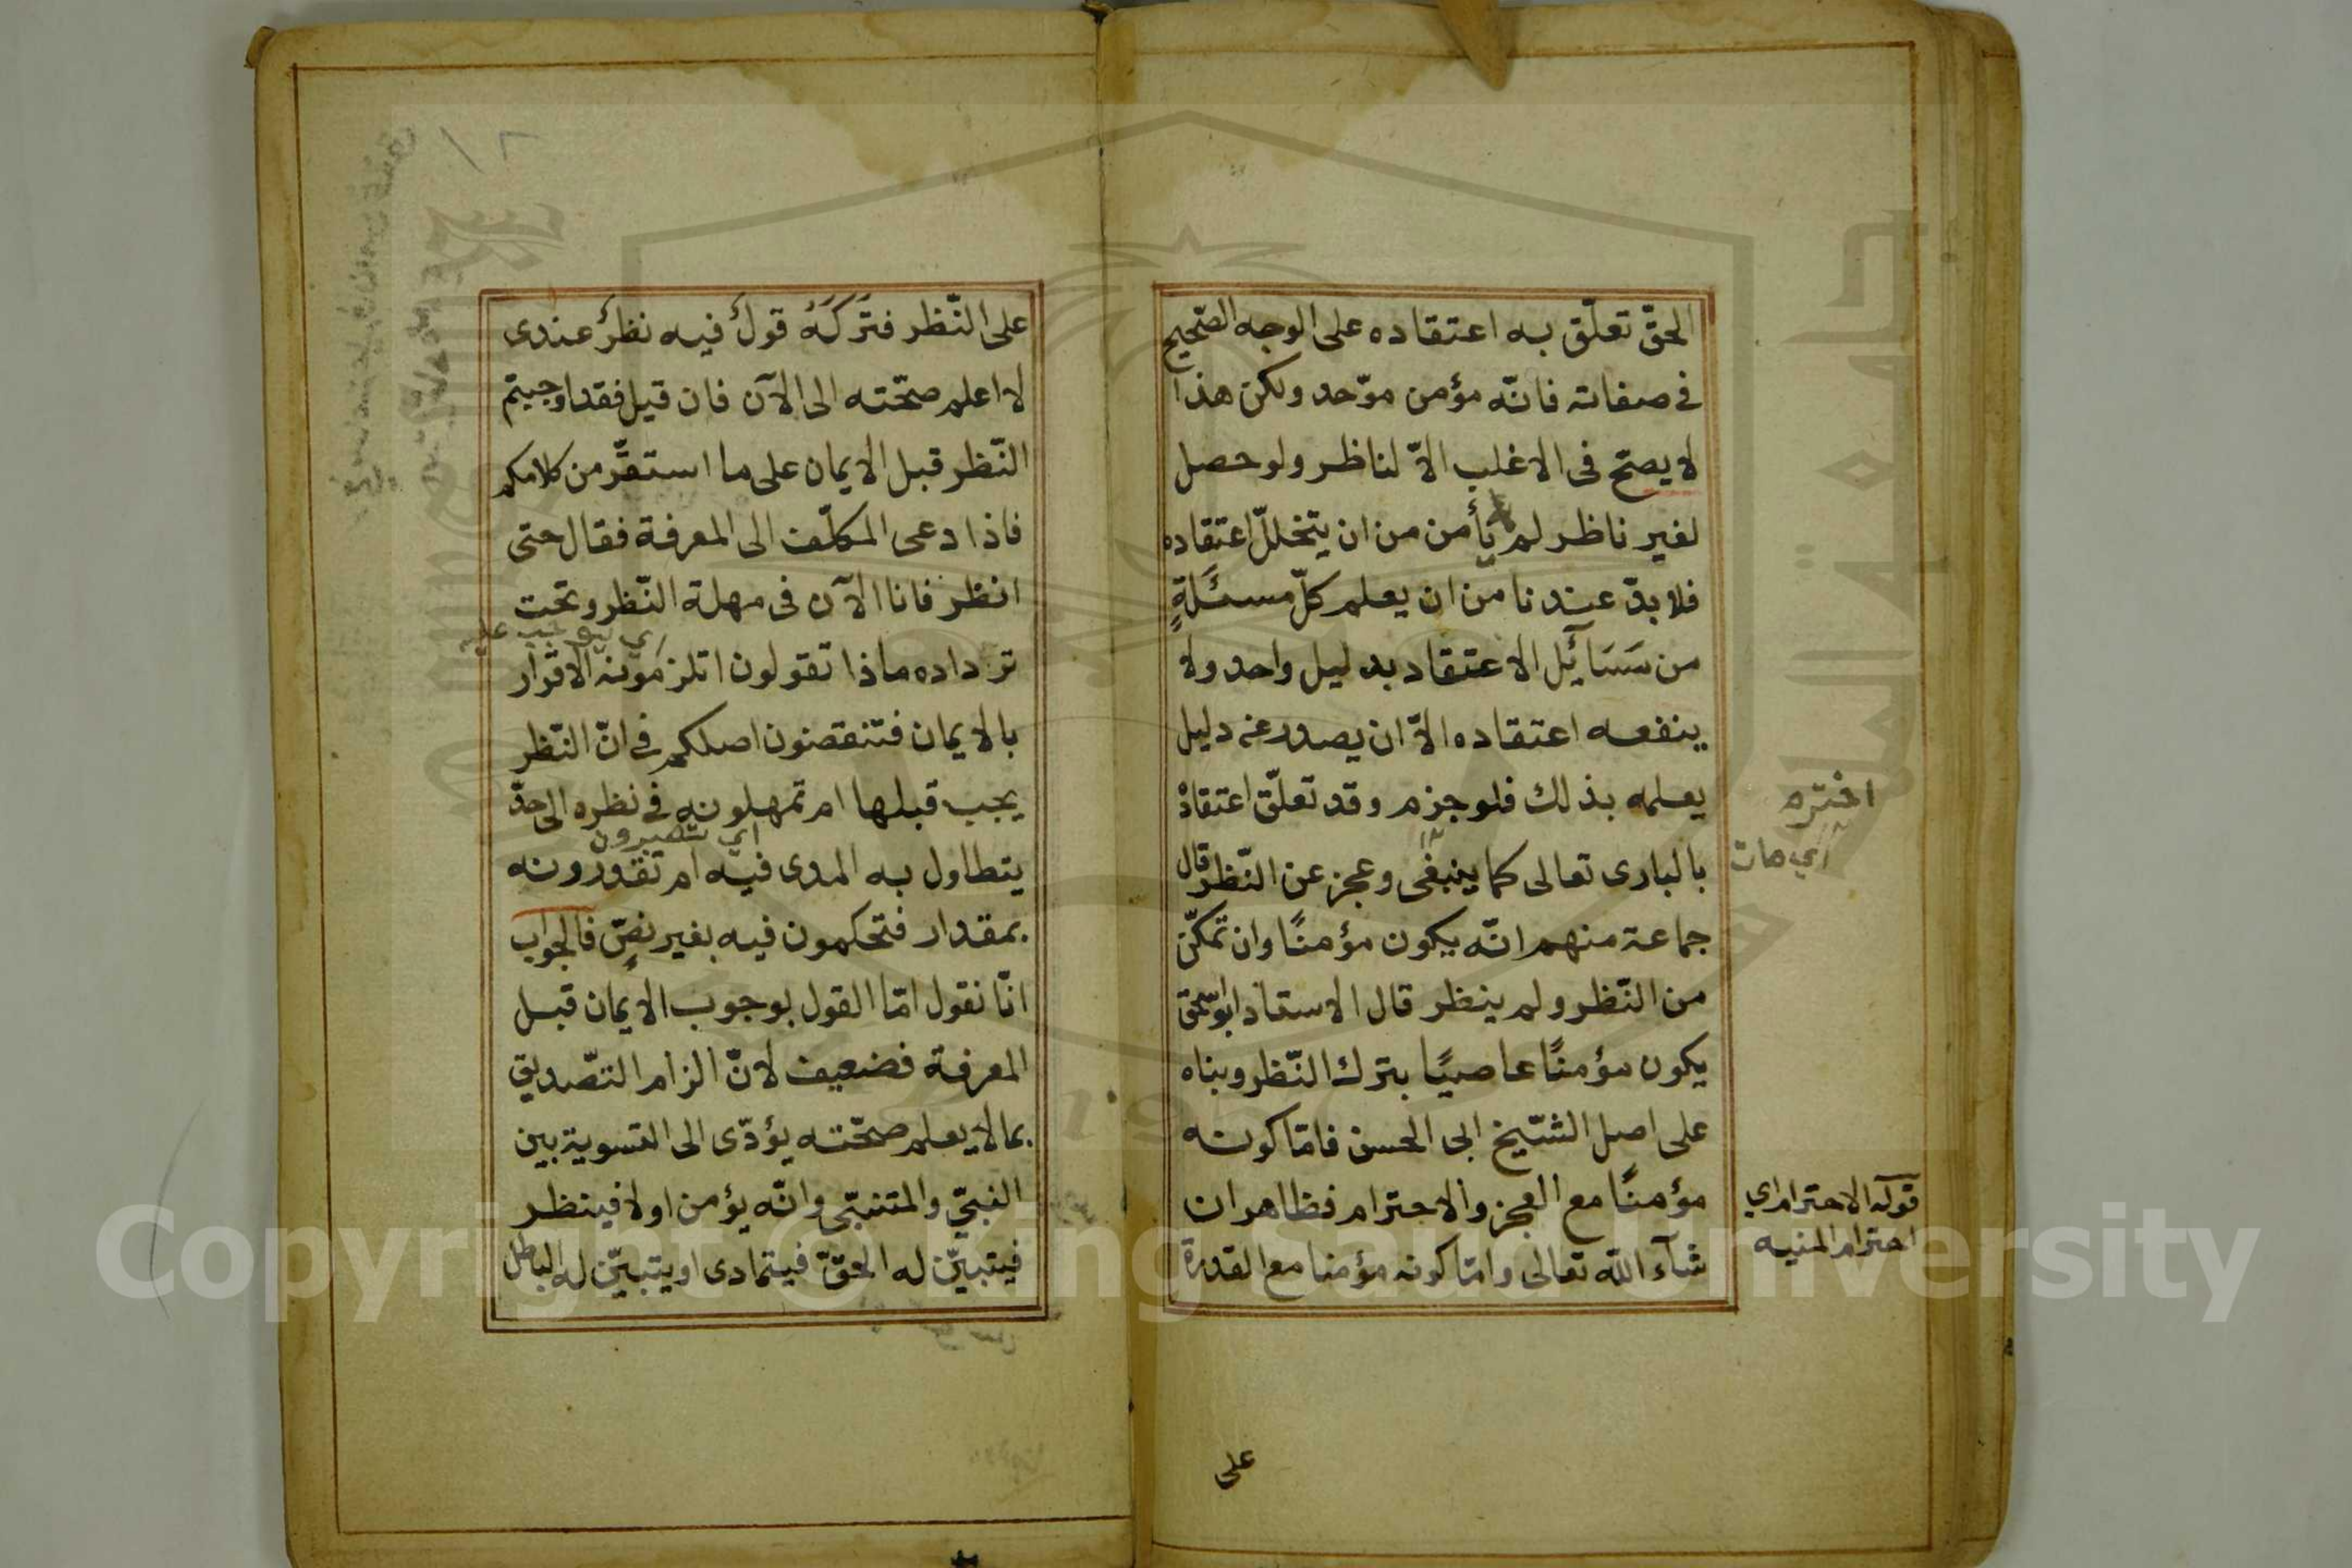 الحقّ تعلّق به اعتقاده على الوجه الصّحيح
في صفاته فانّه مؤمن موّحد ولكن هذا
لا يصحّ فى الاغلب الاّ لناظر ولو حصل
لغير ناظر لم يأمن من ان يتخللّ اعتقاده
فلا بدّ عندنا من ان يعلم كلّ مسئلةٍ
من مَسَائِل الاعتقاد بدليل واحد ولا
ينفعه اعتقاده الاّ ان يصدر عن دليل
يعلمه بذلك فلو جزم وقد تعلّق اعتقادهُ
بالبارى تعالى كما ينبغى وعجز عن النّظر قال
جماعة منهم انّه يكون مؤمنًا وان تمكّن
من النّظر ولم ينظر قال الاستاذ ابو اسحق
يكون مؤمنًا عاصيًا بترك النّظر وبناه
على اصل الشّيخ ابى الحسن فامّا كونه
مؤمنًا مع العجز والاحترام فظاهر ان
شآء اللّه تعالى وامّا كونه مؤمنا مع القدرة
على
اخترم
اي مات
قوله الاحترام اي
احترام المنيه
على النّظر فتَرَكَهُ قولٌ فيه نظرٌ عندى
لا اعلم صحّته الى الآن فان قيل فقد اوجبتم
النّظر قبل الايمان على ما استقرّ من كلامكم
فاذا دعى المكلّف الى المعرفة فقال حتى
انظر فانا الآن فى مهلة النّظر وتحت
ترداده ماذا تقولون اتلزمونه الاقرار
بالايمان فتنقضون اصلكم في انّ النّظر
يجب قبلها ام تمهلونه في نظره الى حدّ
اي تصبرون
يتطاول به المدى فيه ام تقدرونه
بمقدار فتحكمون فيه بغير نصٍّ فالجواب
انّا نقول امّا القول بوجوب الايمان قبل
المعرفة فضعيف لانّ الزام التّصديق
بما لا يعلم صحّته يؤدّى الى التسوية بين
النبىّ والمتنبّى وانّه يؤمن اولا فينظر
فيتبيّن له الحقّ فيتمادى او يتبيّن له الباطل
Copyright © King Saud University